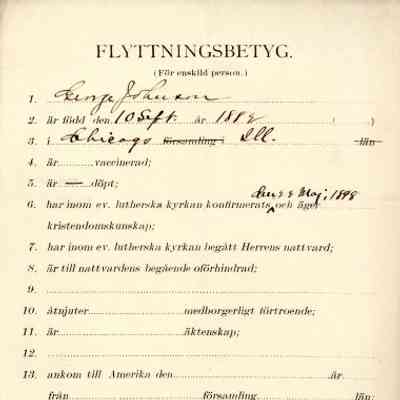 FLYTTNINGSBETYG.
(För enskild person.)
1. George Johnson
2. är född den 10 Sept. år 1882 ( )
3. i Chicago församling Ill. län
4. är vaccinerad;
5. är döpt;
den 22 Maj, 1898
6. har inom ev. lutherska kyrkan konfirmerats och äger
kristendomskunskap;
7. har inom ev. lutherska kyrkan begått Herrens nattvard;
8. är till nattvardens begående oförhindrad;
9.
10. åtnjuter medborgerligt förtroende;
11. är äktenskap;
12.
13. ankom till Amerika den år
från församling län;